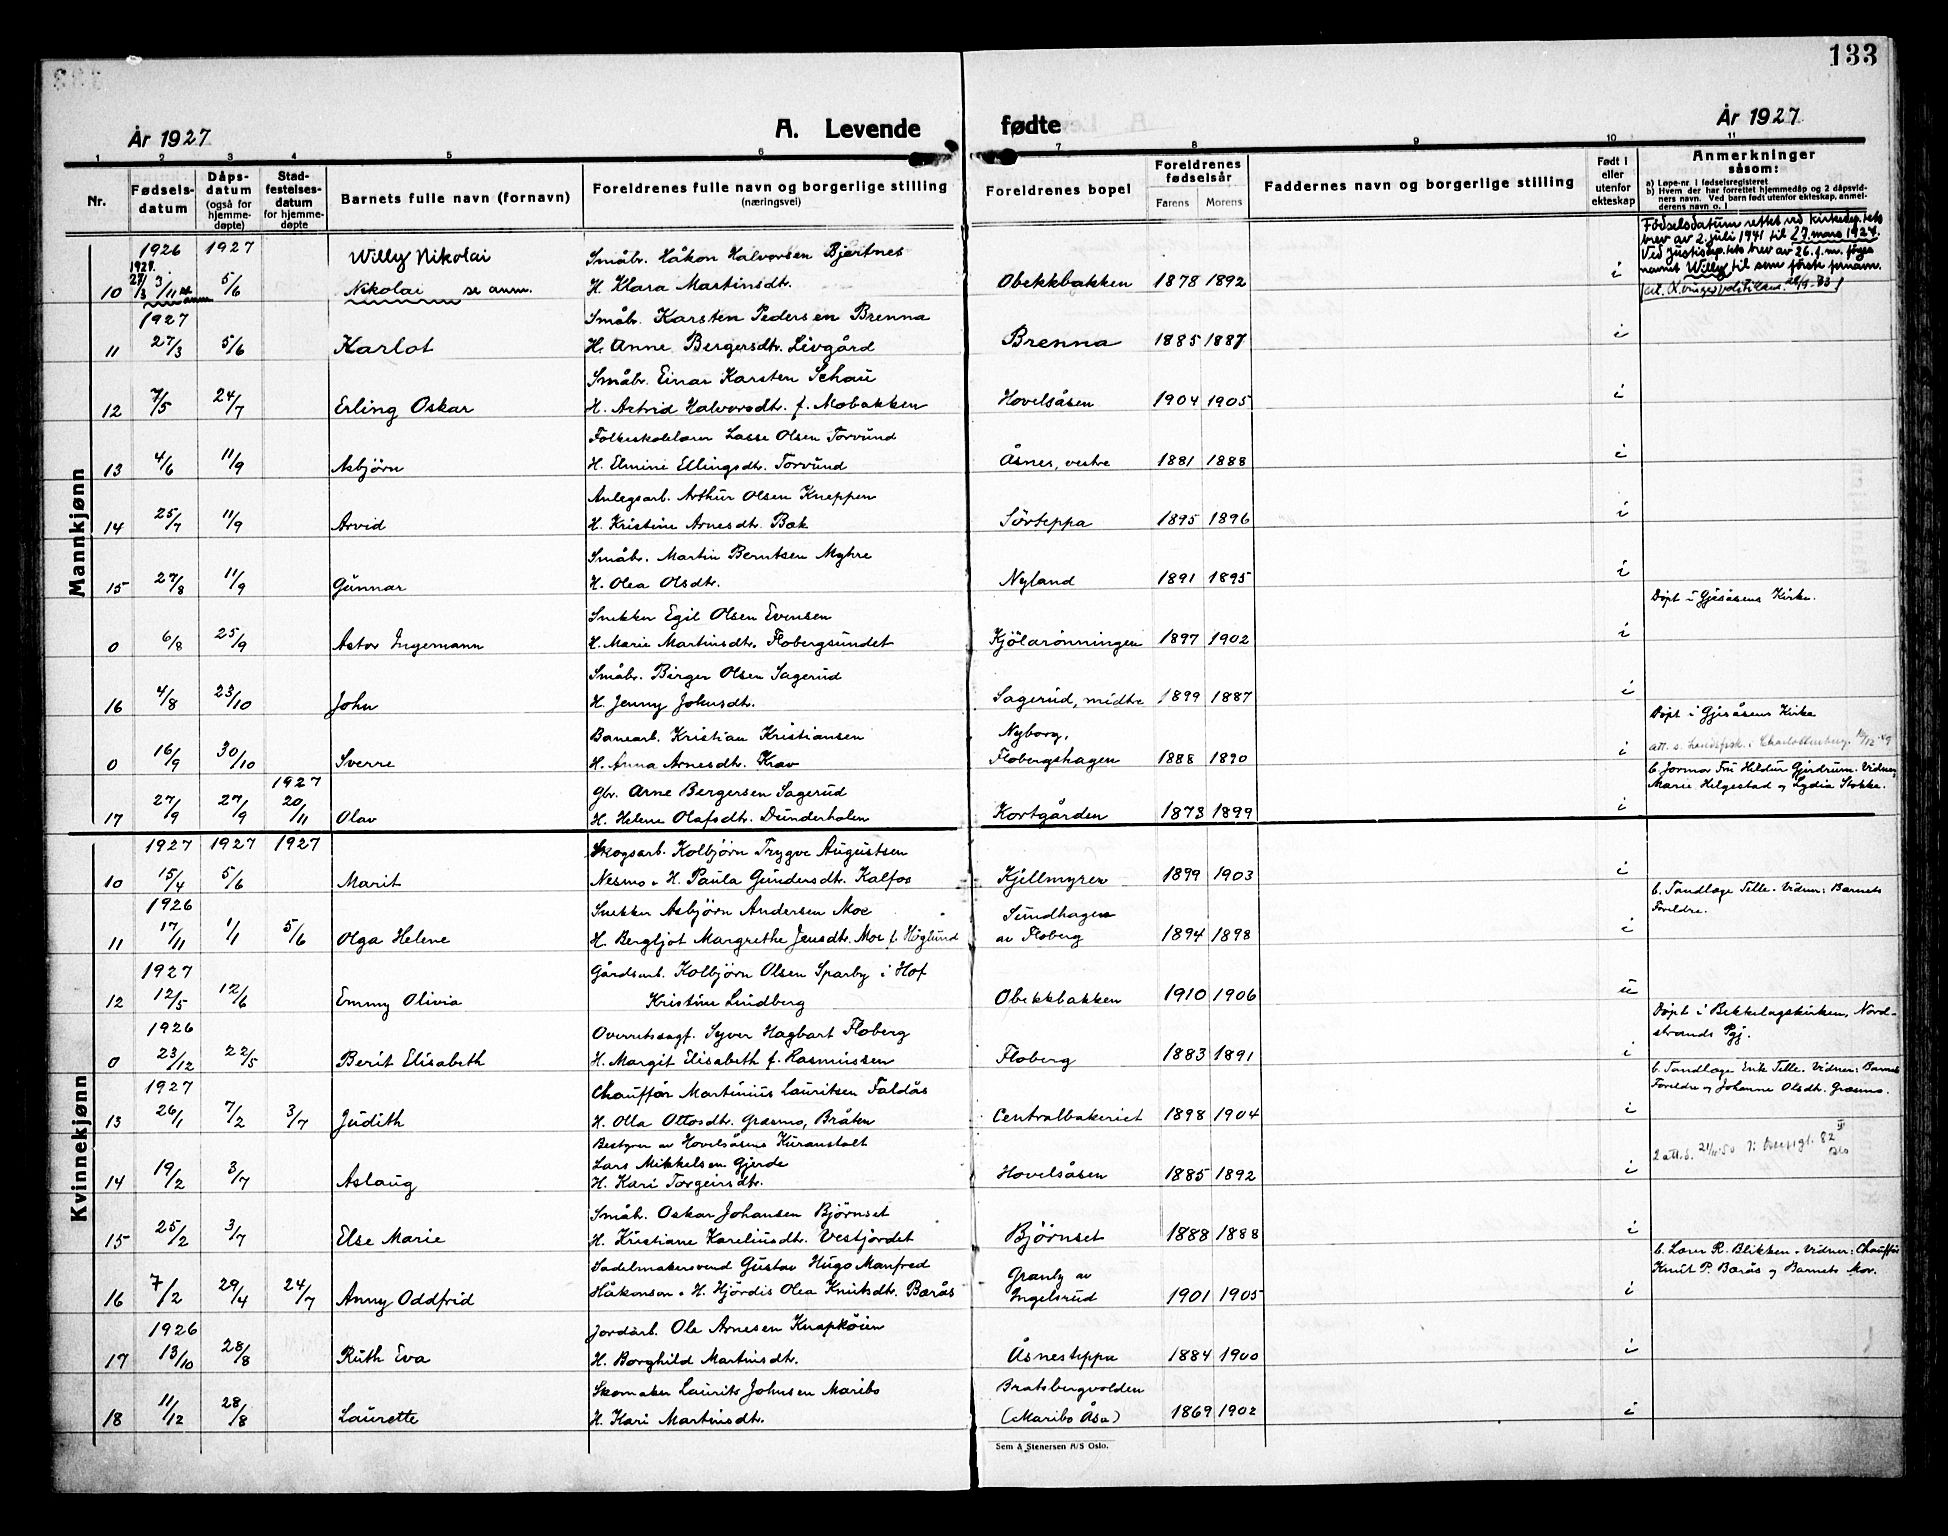 133
År 1927
A. Levende
fødte
År 1927
1 2 3 4 5 6 7 8 9 10 11
Nr.
Fødselsdatum
Dåpsdatum (også for hjemmedøpte)
Stadfestelsesdatum for hjemmedøpte
Barnets fulle navn (fornavn)
Foreldrenes fulle navn og borgerlige stilling (næringsvei)
Foreldrenes bopel
Foreldrenes fødselsår
Farens Morens
Faddernes navn og borgerlige stilling
Født i eller utenfor ekteskap
Anmerkninger såsom:
a) Løpe-nr. i fødselsregisteret
b) Hvem der har forrettet hjemmedåp og 2 dåpsvidners navn. Ved barn født utenfor ekteskap, anmelderens navn o. l
Mannkjønn
1926 1927 Willy Nikolai Småbr. Håkon Halvorsen Bjertnes
10 1927. 27/3 3/11 se anm 5/6 Nikolai se anm. H. Klara Martinsdt. Obekkbakken 1878 1892 i
Fødselsdatum rettet ved Kirkedep.tets
brev av 2. juli 1941 til 27. mars 1927.
Ved Justisdep.tets brev av 26. f. m. føyes
navnet Willy til som første fornavn.
1927 Småbr. Karsten Pedersen Brenna
11 27/3 5/6 Karlot H. Anne Bergersdtr. Livgård Brenna 1885 1887 i
Småbr. Einar Karsten Schau
12 7/5 24/7 Erling Oskar H. Astrid Halvorsdt. f. Mobakken Hovelsåsen 1904 1905 i
Folkeskolelærer Lasse Olsen Torvund
13 4/6 11/9 Asbjörn H. Elmine Ellingsdt. Torvund Åsnes, vestre 1881 1888 i
Anlegsarb. Arthur Olsen Kneppen
14 25/7 11/9 Arvid H. Kristine Arnesdt. Bak Sörteppa 1895 1896 i
Småbr. Martin Berntsen Myhre
15 27/8 11/9 Gunnar H. Olea Olsdtr. Nyland 1891 1895 i
Snekker Egil Olsen Evensen Döpt i Gjesåsens Kirke.
0 6/8 25/9 Astor Ingemann H. Marie Martinsdt. Flobergsundet Kjölarönningen 1897 1902 i
Småbr. Birger Olsen Sagerud
16 4/8 23/10 John H. Jenny Johnsdt. Sagerud, midtre 1899 1887 i
Banearb. Kristian Kristiansen Nyborg, Döpt i Gjesåsens Kirke
0 16/9 30/10 Sverre H. Anna Arnesdt. Krav Flobergshagen 1888 1890 i att. s. Landsfisk. i Charlottenberg
1927 Gbr. Arne Bergersen Sagerud b. Jormor Fru Hildur Gjerdrum. Vidner
17 27/9 27/9 20/11 Olav H. Helene Olafsdt. Dunderholen Kortgården 1873 1899 i Marie Helgestad og Lydia Stokke.
Kvinnekjønn
1927 1927 1927 Skogsarb. Kolbjörn Trygve Augustsen
10 15/4 5/6 Marit Nesmo. H. Paula Gundersdt. Kalfos Kjellmyrer 1899 1903 i
1926 Snekker Asbjörn Andersen Moe Sundhagen b. Tandlæge Telle. Vidner: Barnets
11 17/11 1/1 5/6 Olga Helene H. Bergljot Margrethe Jensdt. Moe f. Höglund av Floberg 1894 1898 i Foreldre.
1927 Gårdsarb. Kolbjörn Olsen Sparby i Hof
12 12/5 12/6 Emmy Olivia Kristine Lindberg Obekkbakken 1910 1906 u
1926 Overretssagf. Syver Hagbart Floberg Döpt i Bekkelagskirken, Nord-
0 23/12 22/5 Berit Elisabeth H. Margit Elisabeth f. Rasmussen Floberg 1883 1891 i strands Pgj.
1927 Chauffør Martinius Lauritsen Faldås b. Tandlæge Erik Telle. Vidner: Barnets
13 26/1 7/2 3/7 Judith H. Olla Ottosdt. Græsmo, Bråten Centralbakeriet 1898 1904 i Foreldre og Johanne Olsdt. Græsmo.
Bestyrer av Hovelsåsens Kuranstalt
Lars Mikkelsen Gjerde
14 19/2 3/7 Aslaug H. Kari Torgeirsdt. Hovelsåsen 1885 1892 i
Småbr. Oskar Johansen Björnset
15 25/2 3/7 Else Marie H. Kristiane Kareliusdt. Vestjordet Björnset 1888 1888 i
Sadelmakersvend Gustav Hugo Manfred Granly av b. Lærer R. Blikken. Vidner: Chauffør
16 7/2 29/4 24/7 Anny Oddfrid Håkonson. H. Hjördis Olea Knutsdt. Berås Ingelsrud 1901 1905 i Knut P. Berås og Barnets Mor.
1926 Jordarb. Ole Arnesen Knapköien
17 13/10 28/8 Ruth Eva H. Borghild Martinsdt. Åsnesteppa 1884 1900 i
Skomaker Laurits Johnsen Maribo Bratsbergvolden
18 11/12 28/8 Laurette H. Kari Martinsdt. (Maribo Åsa) 1869 1902 i
Sem & Stenersen A/S Oslo.